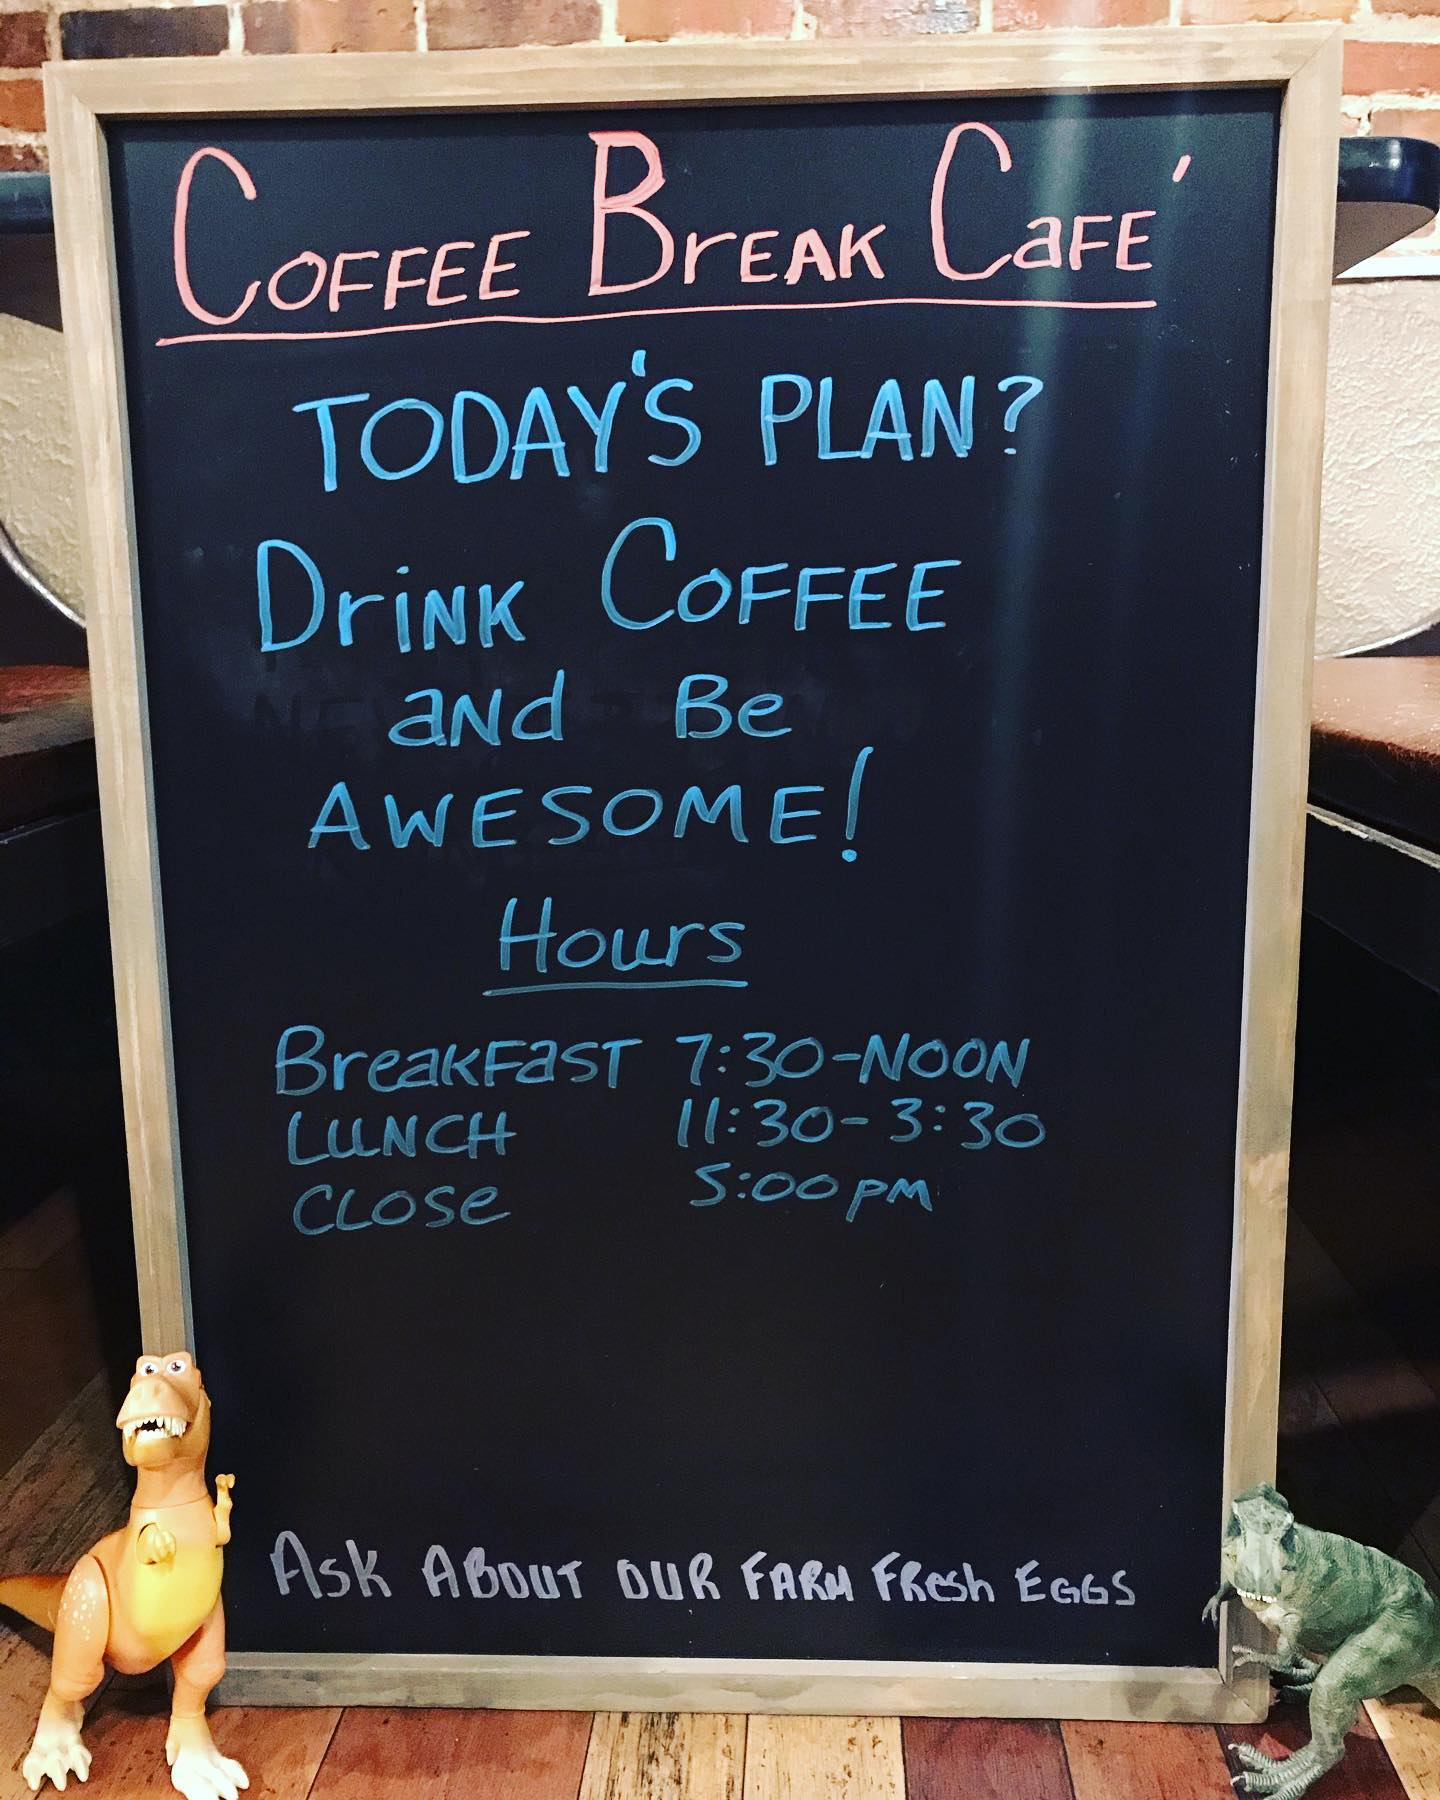 Coffee Break Café
TODAY'S PLAN?
Drink Coffee
and Be
AWESOME!
Hours
Breakfast 7:30-NOON
LUNCH 11:30-3:30
CLOSE 5:00 PM
Ask About our Farm Fresh Eggs